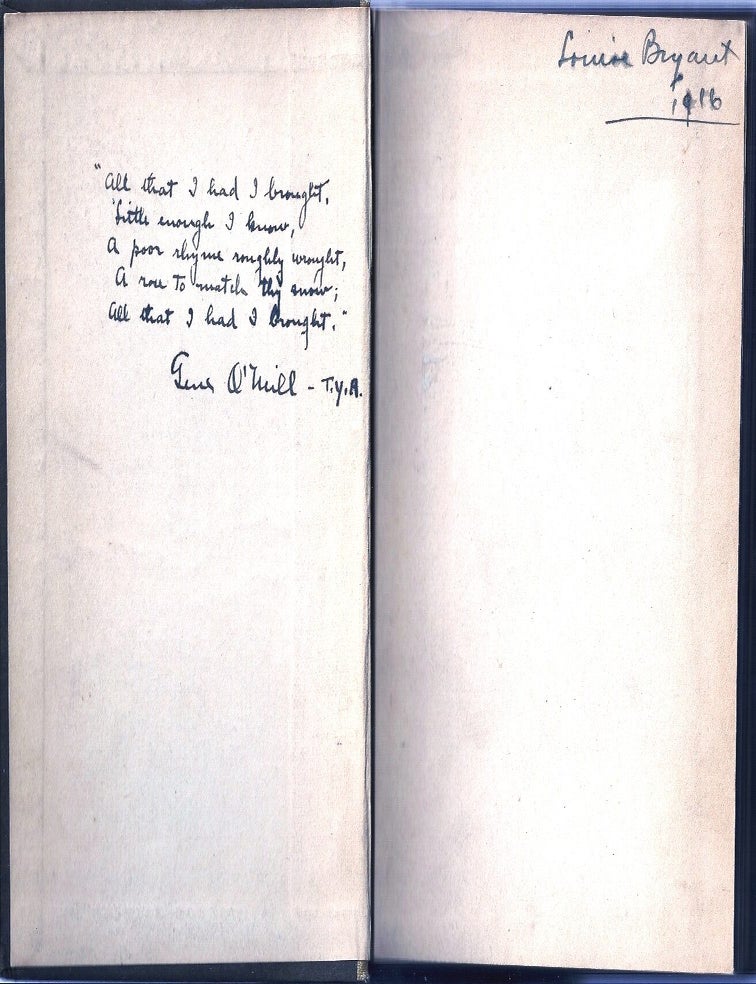 "All that I had I brought,
Little enough I know,
A poor rhyme roughly wrought,
A rose to match thy snow;
All that I had I brought."
Gene O'Neill - T.Y.A.
Louise Bryant
1916